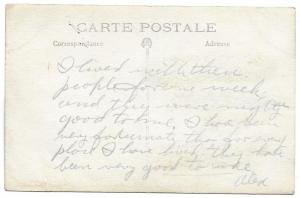 CARTE POSTALE
Correspondance
Adresse
I lived with these
people for one week
and they were mighty
good to me. I have been
very fortunate, for every
place I have lived, they have
been very good to me.
Alex